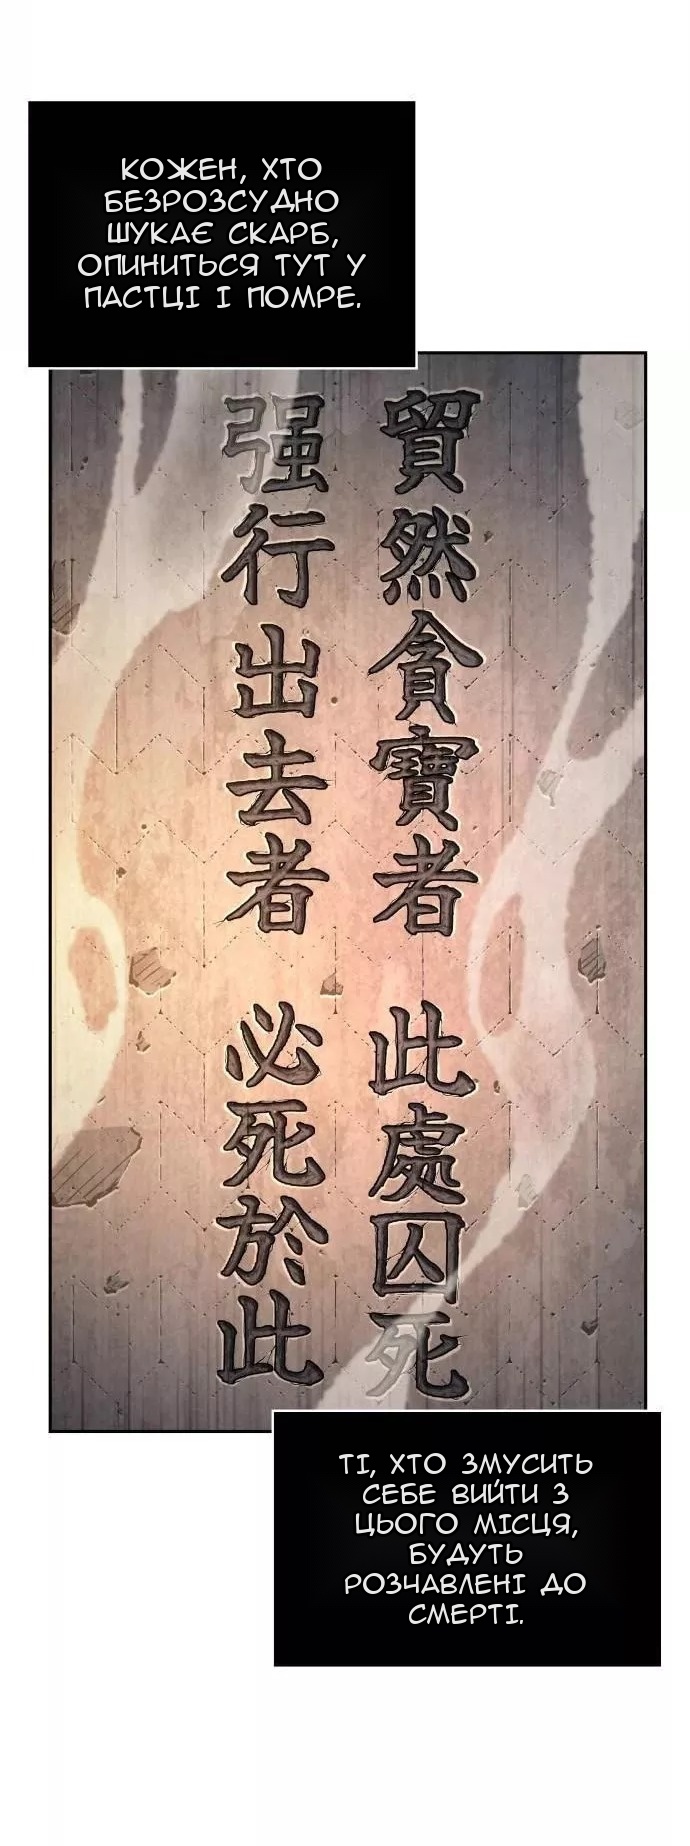 КОЖЕН, ХТО
БЕЗРОЗСУДНО
ШУКАЄ СКАРБ,
ОПИНИТЬСЯ ТУТ У
ПАСТЦІ І ПОМРЕ.
貿然貪寶者 此處囚死
强行出去者 必死於此
ТІ, ХТО ЗМУСИТЬ
СЕБЕ ВИЙТИ З
ЦЬОГО МІСЦЯ,
БУДУТЬ
РОЗЧАВЛЕНІ ДО
СМЕРТІ.